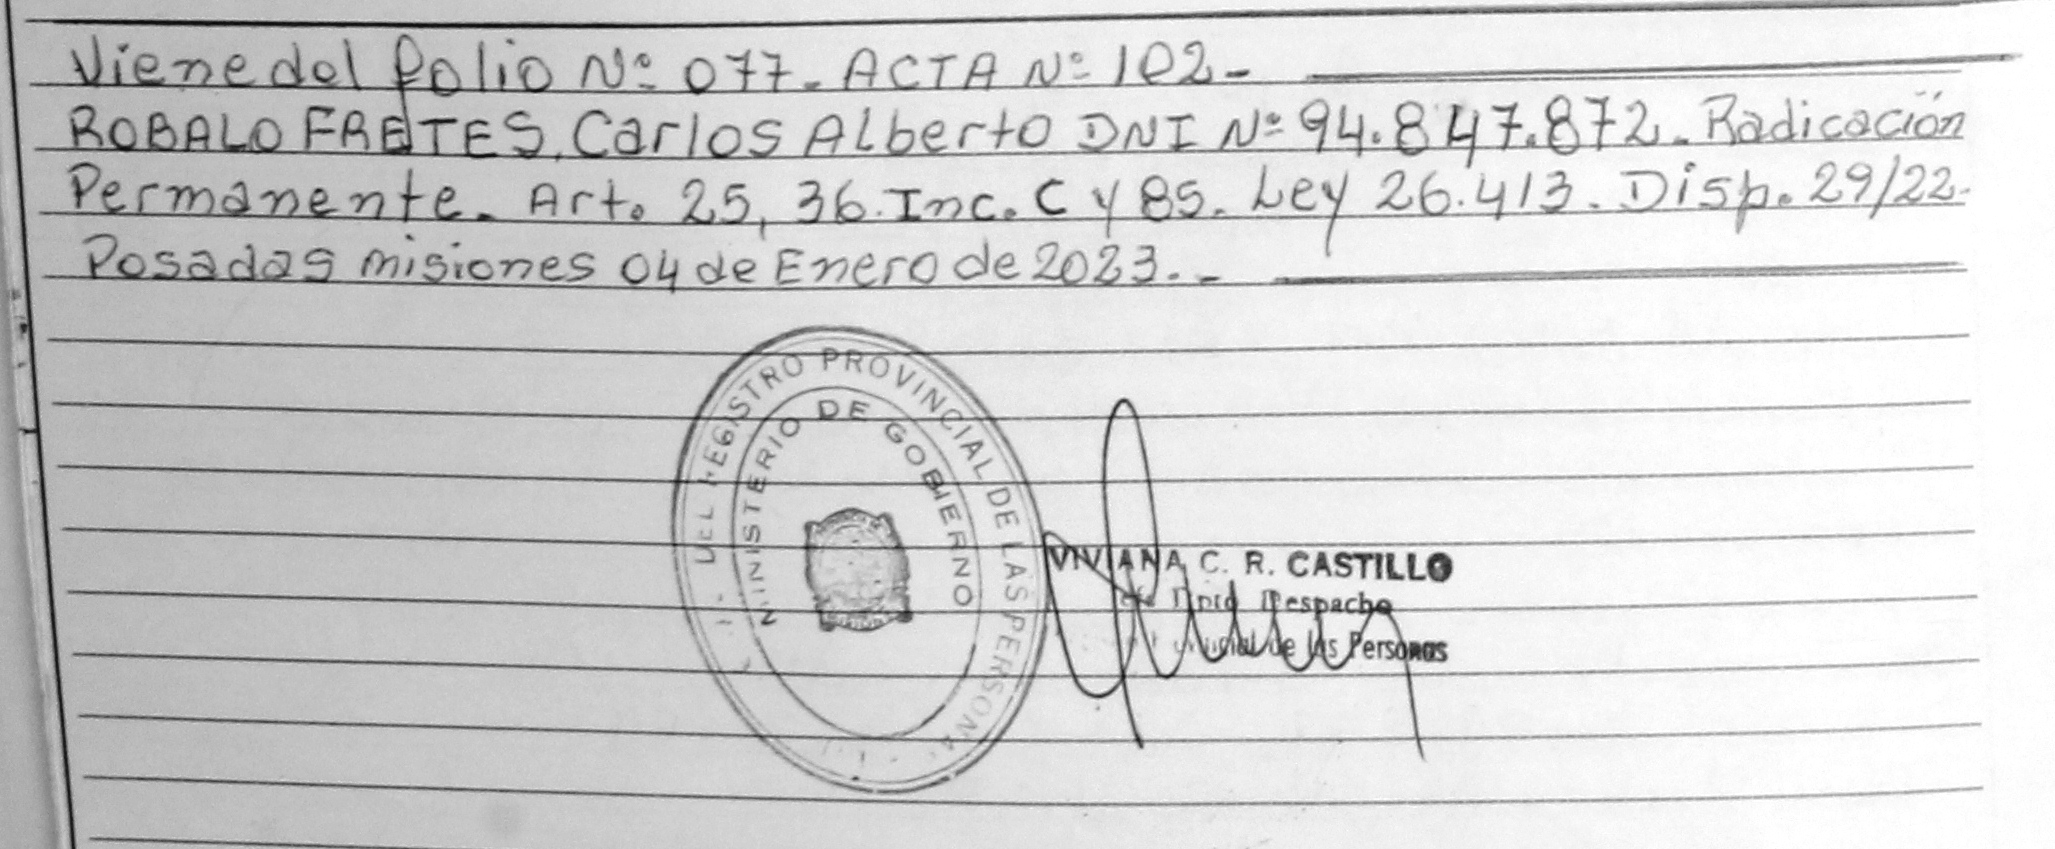 Viene del folio Nº 077. ACTA Nº 102-
ROBALO FRETES, Carlos Alberto DNI Nº 94.847.872. Radicación
Permanente. Art. 25, 36. Inc. C y 85. Ley 26.413. Disp. 29/22.
Posadas misiones 04 de Enero de 2023.-
DEL REGISTRO PROVINCIAL DE LAS PERSONAS
MINISTERIO DE GOBIERNO
VIVIANA C. R. CASTILLO
Despacho
de las Personas